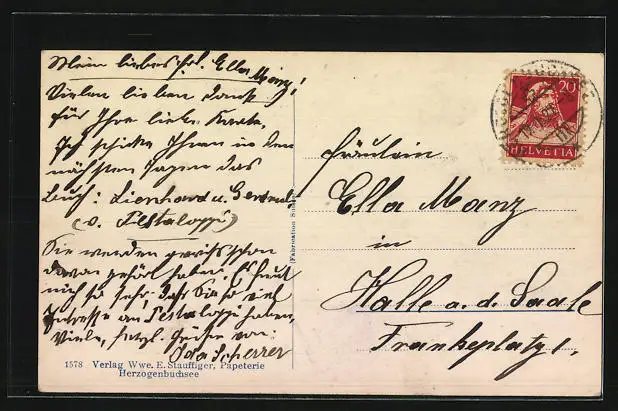 Mein liebes Frl. Ella Manz!
Vielen lieben Dank
für Ihre liebe Karte.
Ich schicke Ihnen in den
nächsten Tagen das
Buch: Lienhard u. Gertrud
(v. Pestalozzi)
Sie werden gewiss schon
davon gehört haben. Es freut
mich so sehr, daß Sie so viel
Interesse an Pestalozzi haben,
Viele, herzl. Grüße von
Ida Scherrer
1578 Verlag Wwe. E. Stauffiger, Papeterie
Herzogenbuchsee
(Fabrication
20
HELVETIA
Fräulein
Ella Manz
in
Halle a. d. Saale
Frankeplatz 1.